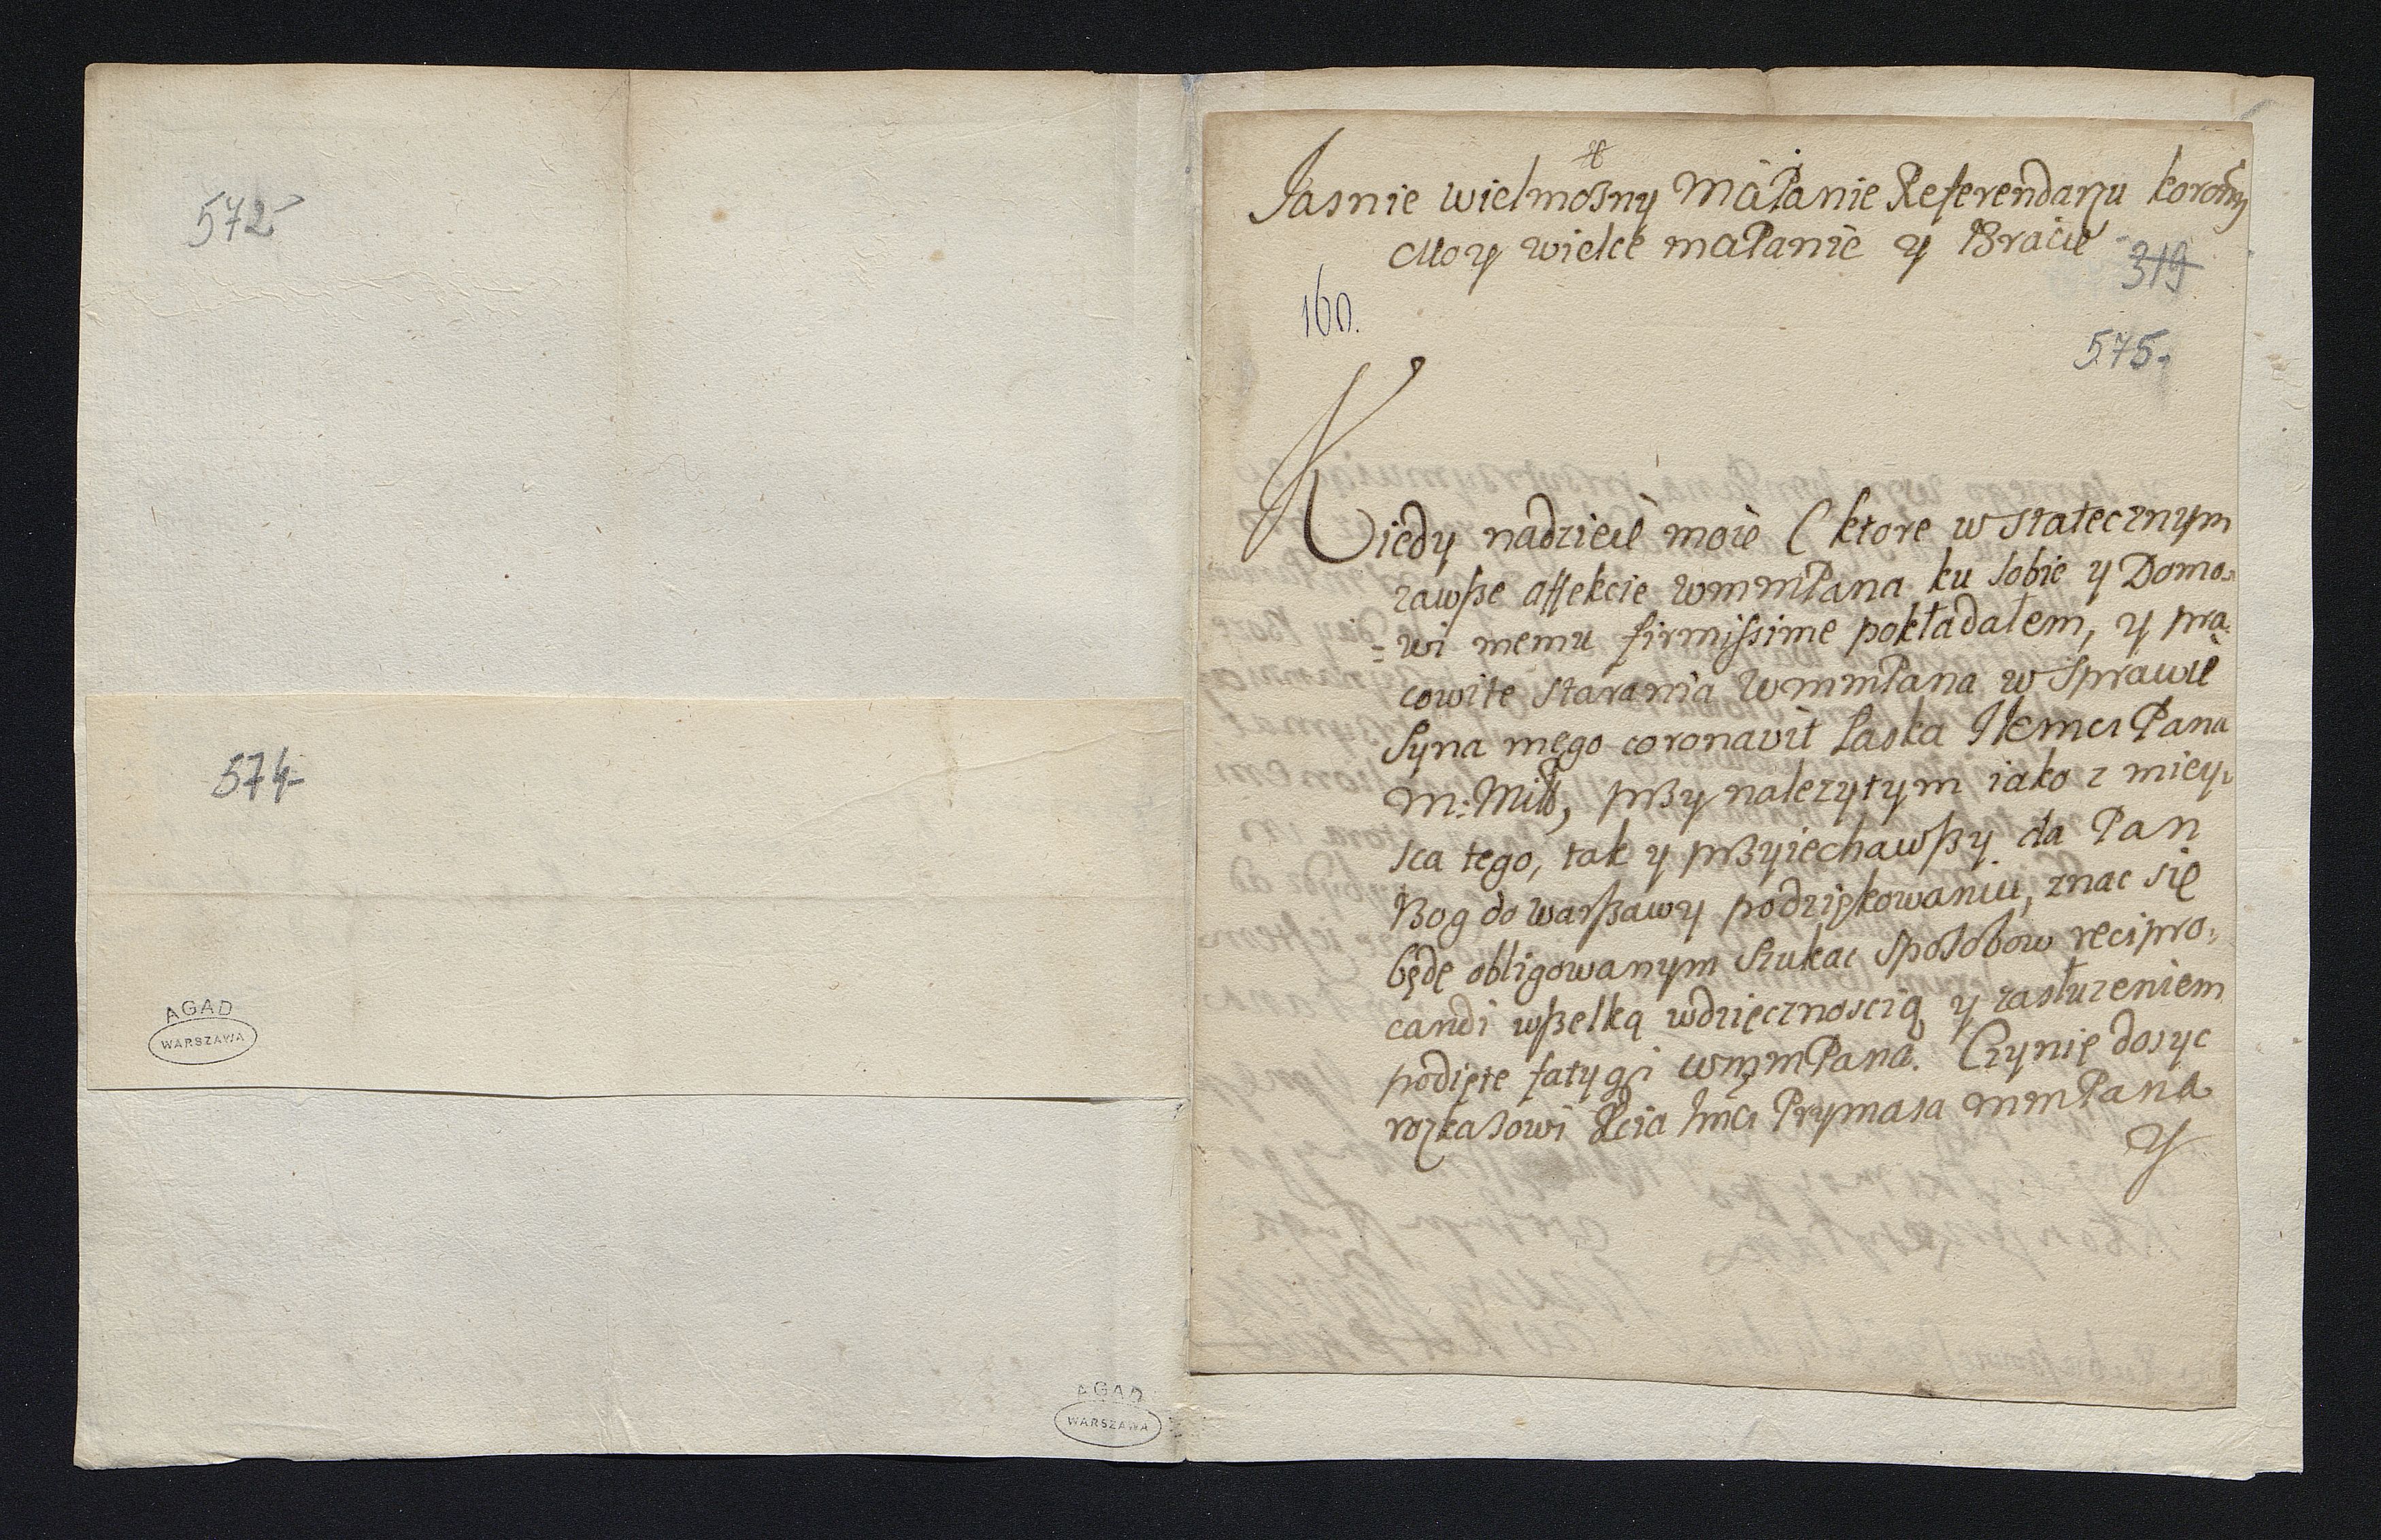 572
574
AGAD
WARSZAWA
AGAD
WARSZAWA
Jasnie wielmożny MaPanie Referendarzu koronny
Moy wielce maPanie y Bracie
319
160.
575.
Kiedy nadzieie moie (ktore w statecznym
zawsze affekcie wmmPana ku sobie y Domo-
=wi memu firmissime pokładałem, y pra-
cowite starania wmmPana w Sprawie
Syna mego coronavit łaska JKmci Pana
M: przy nalezytym iako z miey-
sca tego, tak y przyiechawszy da Pan
Bog do warszawy podziękowaniu, znac się
będę obligowanym szukac sposobow recipro-
candi wszelką wdzięcznoscią y zasłuzeniem
podięte fatygi wmmPana. Czynię dosyc
rozkasowi Xcia Jmci Prymasa mmPana
y